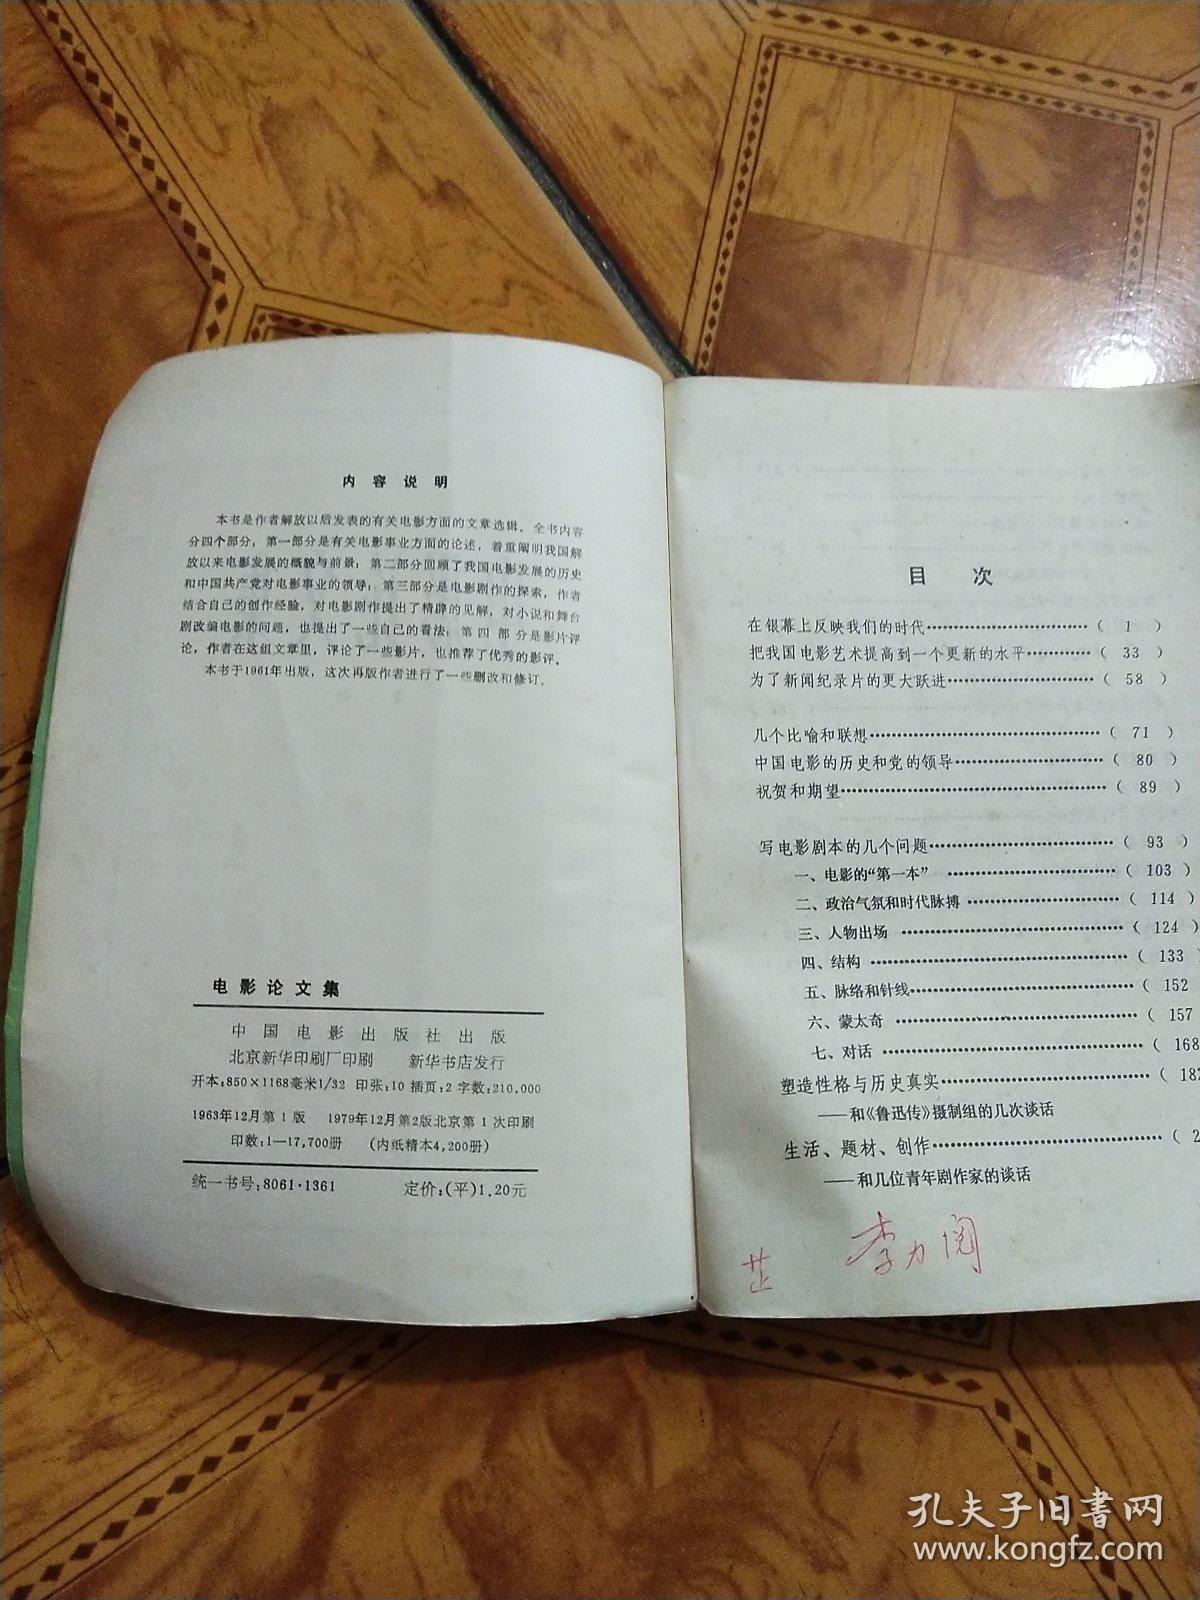 内容说明
本书是作者解放以后发表的有关电影方面的文章选辑。全书内容
分四个部分，第一部分是有关电影事业方面的论述，着重阐明我国解
放以来电影发展的概貌与前景；第二部分回顾了我国电影发展的历史
和中国共产党对电影事业的领导；第三部分是电影剧作的探索，作者
结合自己的创作经验，对电影剧作提出了精辟的见解，对小说和舞台
剧改编电影的问题，也提出了一些自己的看法；第四部分是影片评
论，作者在这组文章里，评论了一些影片，也推荐了优秀的影评。
本书于1961年出版，这次再版作者进行了一些删改和修订。
电影论文集
中国电影出版社出版
北京新华印刷厂印刷 新华书店发行
开本：850×1168毫米1/32 印张：10 插页：2 字数：210,000
1963年12月第1版 1979年12月第2版北京第1次印刷
印数：1—17,700册 （内纸精本4,200册）
统一书号：8061·1361 定价：(平)1.20元
目次
在银幕上反映我们的时代……………………( 1 )
把我国电影艺术提高到一个更新的水平…………( 33 )
为了新闻纪录片的更大跃进……………………( 58 )
几个比喻和联想…………………………………( 71 )
中国电影的历史和党的领导……………………( 80 )
祝贺和期望………………………………………( 89 )
写电影剧本的几个问题…………………………( 93 )
一、电影的“第一本”……………………………( 103 )
二、政治气氛和时代脉搏………………………( 114 )
三、人物出场……………………………………( 124 )
四、结构…………………………………………( 133 )
五、脉络和针线…………………………………( 152
六、蒙太奇………………………………………( 157
七、对话…………………………………………( 168
塑造性格与历史真实……………………………( 187
——和《鲁迅传》摄制组的几次谈话
生活、题材、创作………………………………( 2
——和几位青年剧作家的谈话
孔夫子旧书网
www.kongfz.com